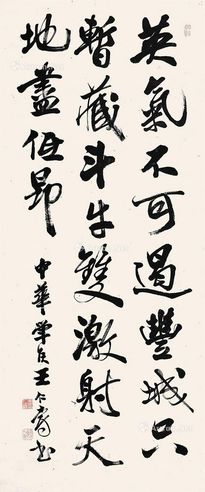 英氣不可遏豐城只
暫藏斗牛雙激射天
地盡低昂
中華學 王个簃書